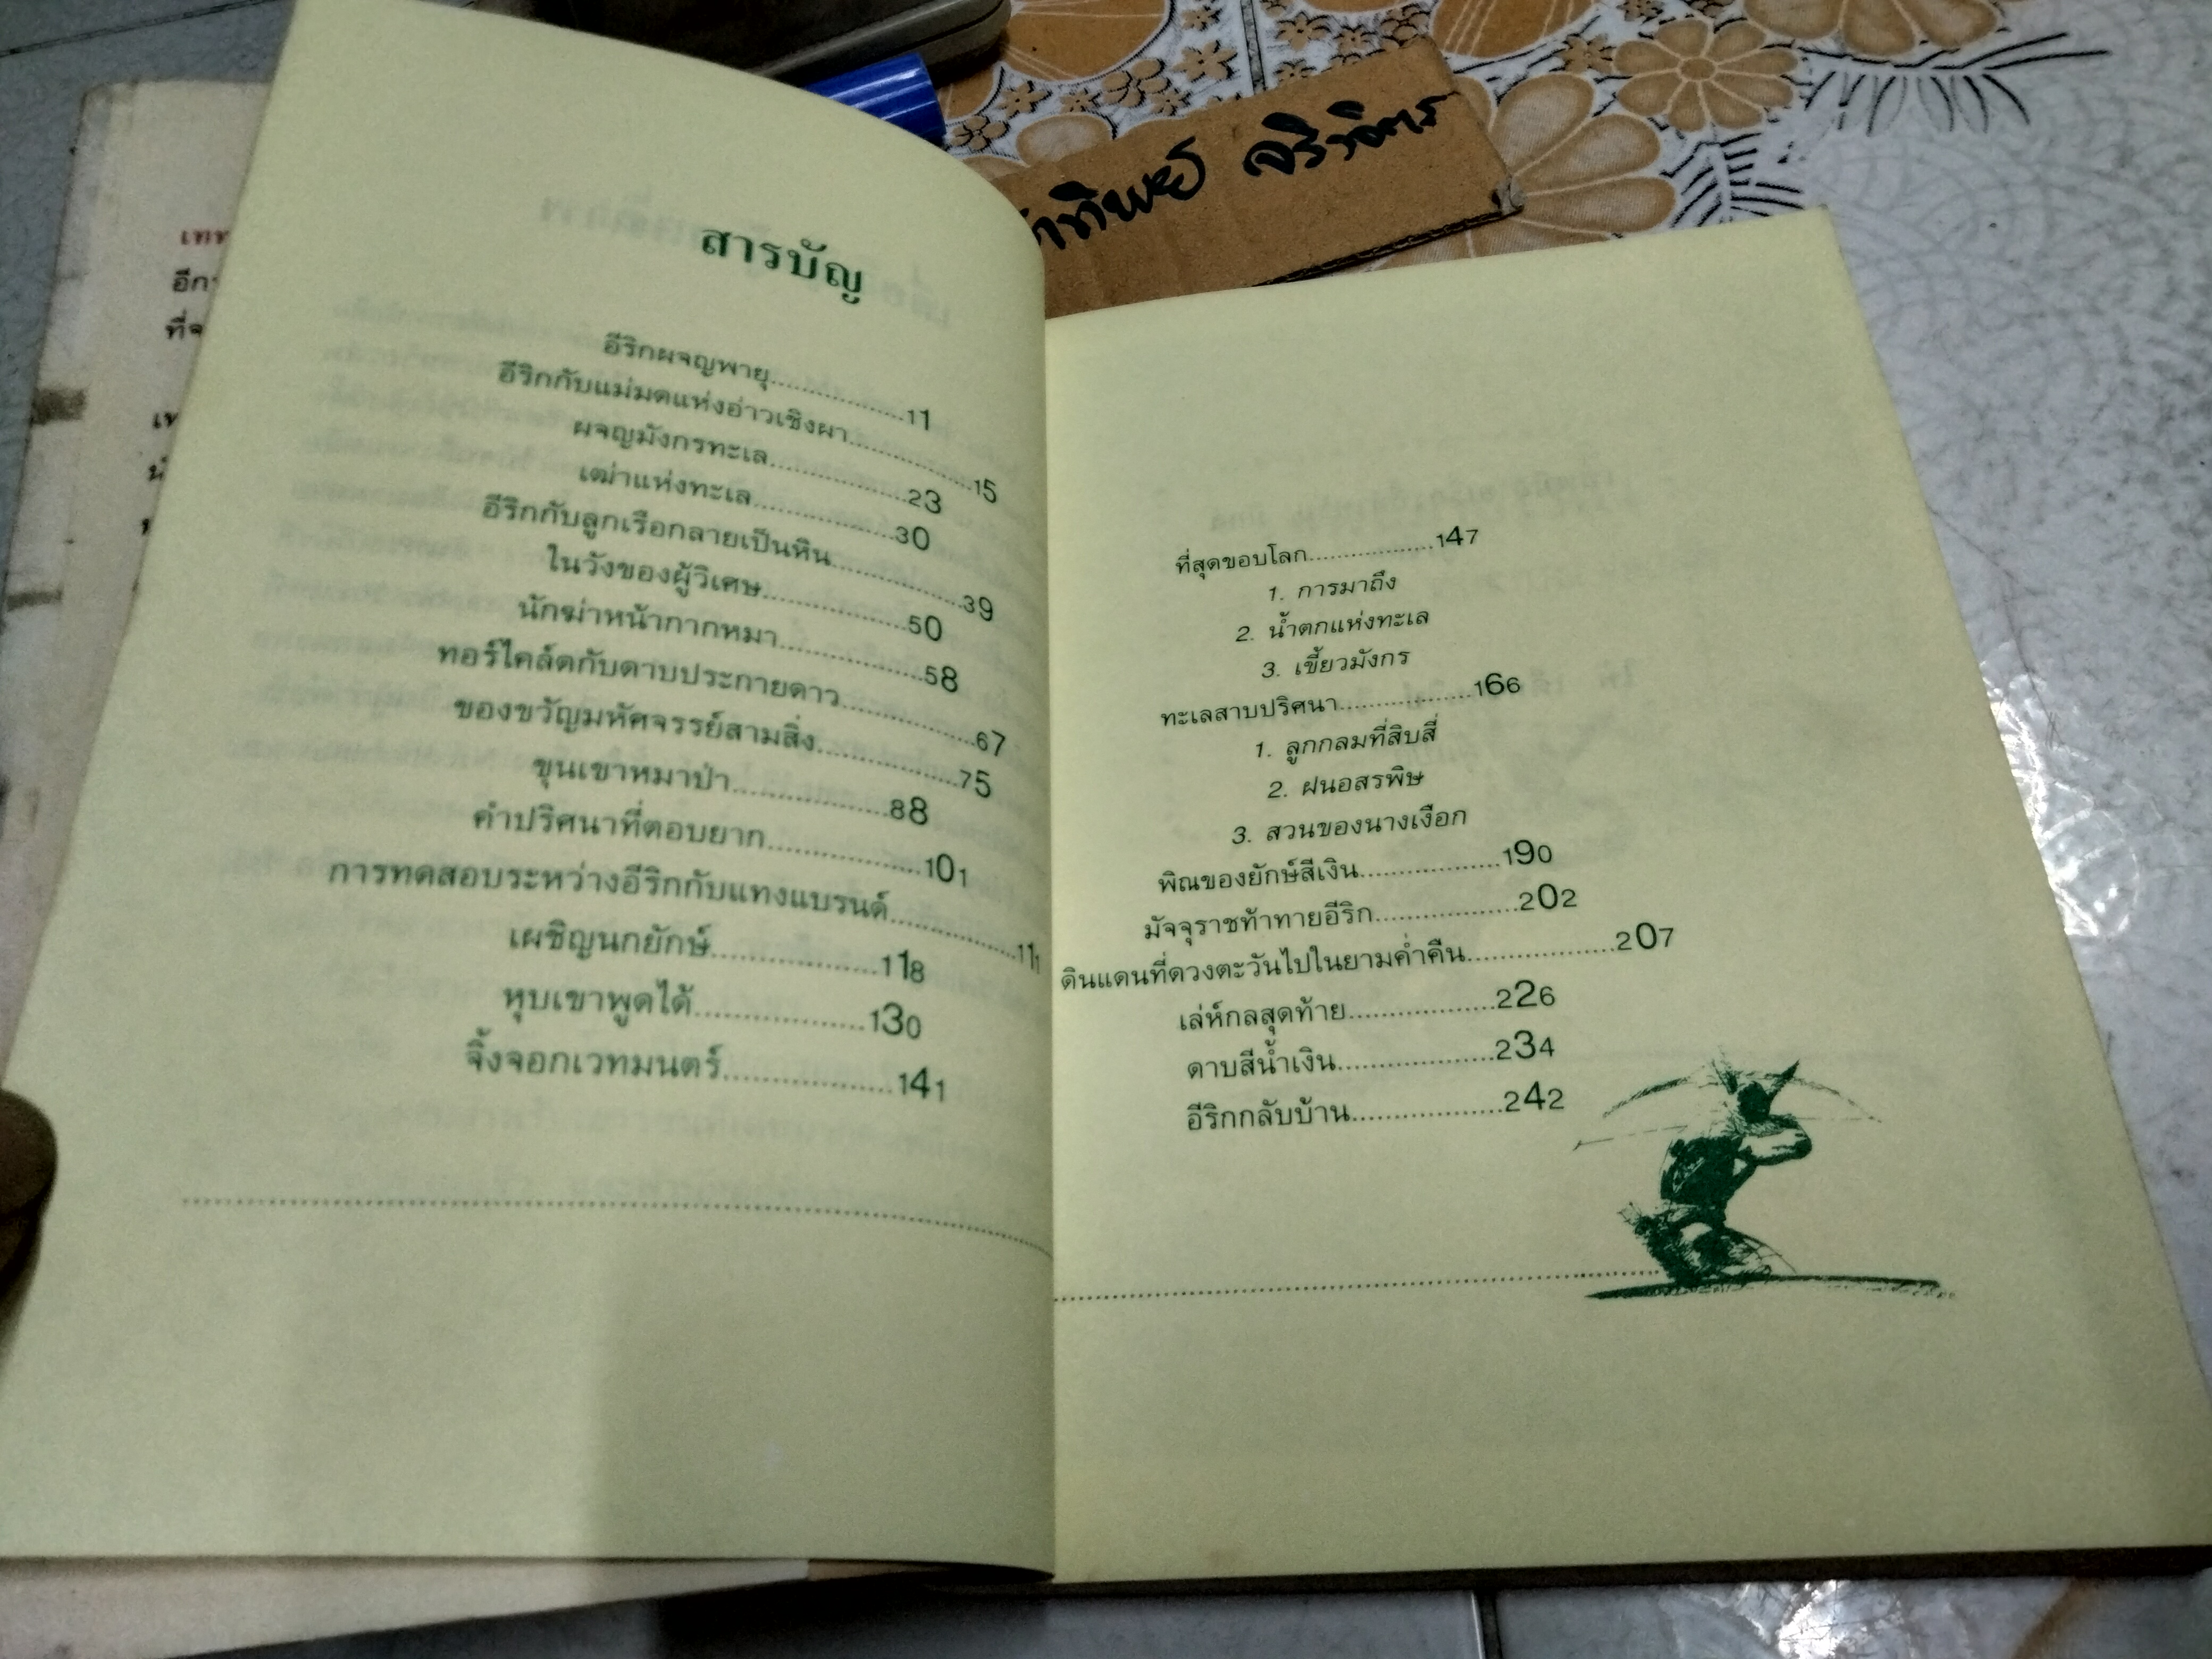 สารบัญ
อีริกผจญพายุ....................11
อีริกกับแม่มดแห่งอ่าวเชิงผา....................15
ผจญมังกรทะเล....................23
เฒ่าแห่งทะเล....................30
อีริกกับลูกเรือกลายเป็นหิน....................39
ในวังของผู้วิเศษ....................50
นักฆ่าหน้ากากหมา....................58
ทอร์ไคล์ดกับดาบประกายดาว....................67
ของขวัญมหัศจรรย์สามสิ่ง....................75
ขุนเขาหมาป่า....................88
คำปริศนาที่ตอบยาก....................101
การทดสอบระหว่างอีริกกับแทงแบรนด์....................111
เผชิญนกยักษ์....................118
หุบเขาพูดได้....................130
จิ้งจอกเวทมนตร์....................141
ที่สุดขอบโลก....................147
1. การมาถึง
2. น้ำตกแห่งทะเล
3. เขี้ยวมังกร
ทะเลสาบปริศนา....................166
1. ลูกกลมที่สิบสี่
2. ฝนอสรพิษ
3. สวนของนางเงือก
พิณของยักษ์สีเงิน....................190
มัจจุราชท้าทายอีริก....................202
ดินแดนที่ดวงตะวันไปในยามค่ำคืน....................207
เล่ห์กลสุดท้าย....................226
ดาบสีน้ำเงิน....................234
อีริกกลับบ้าน....................242